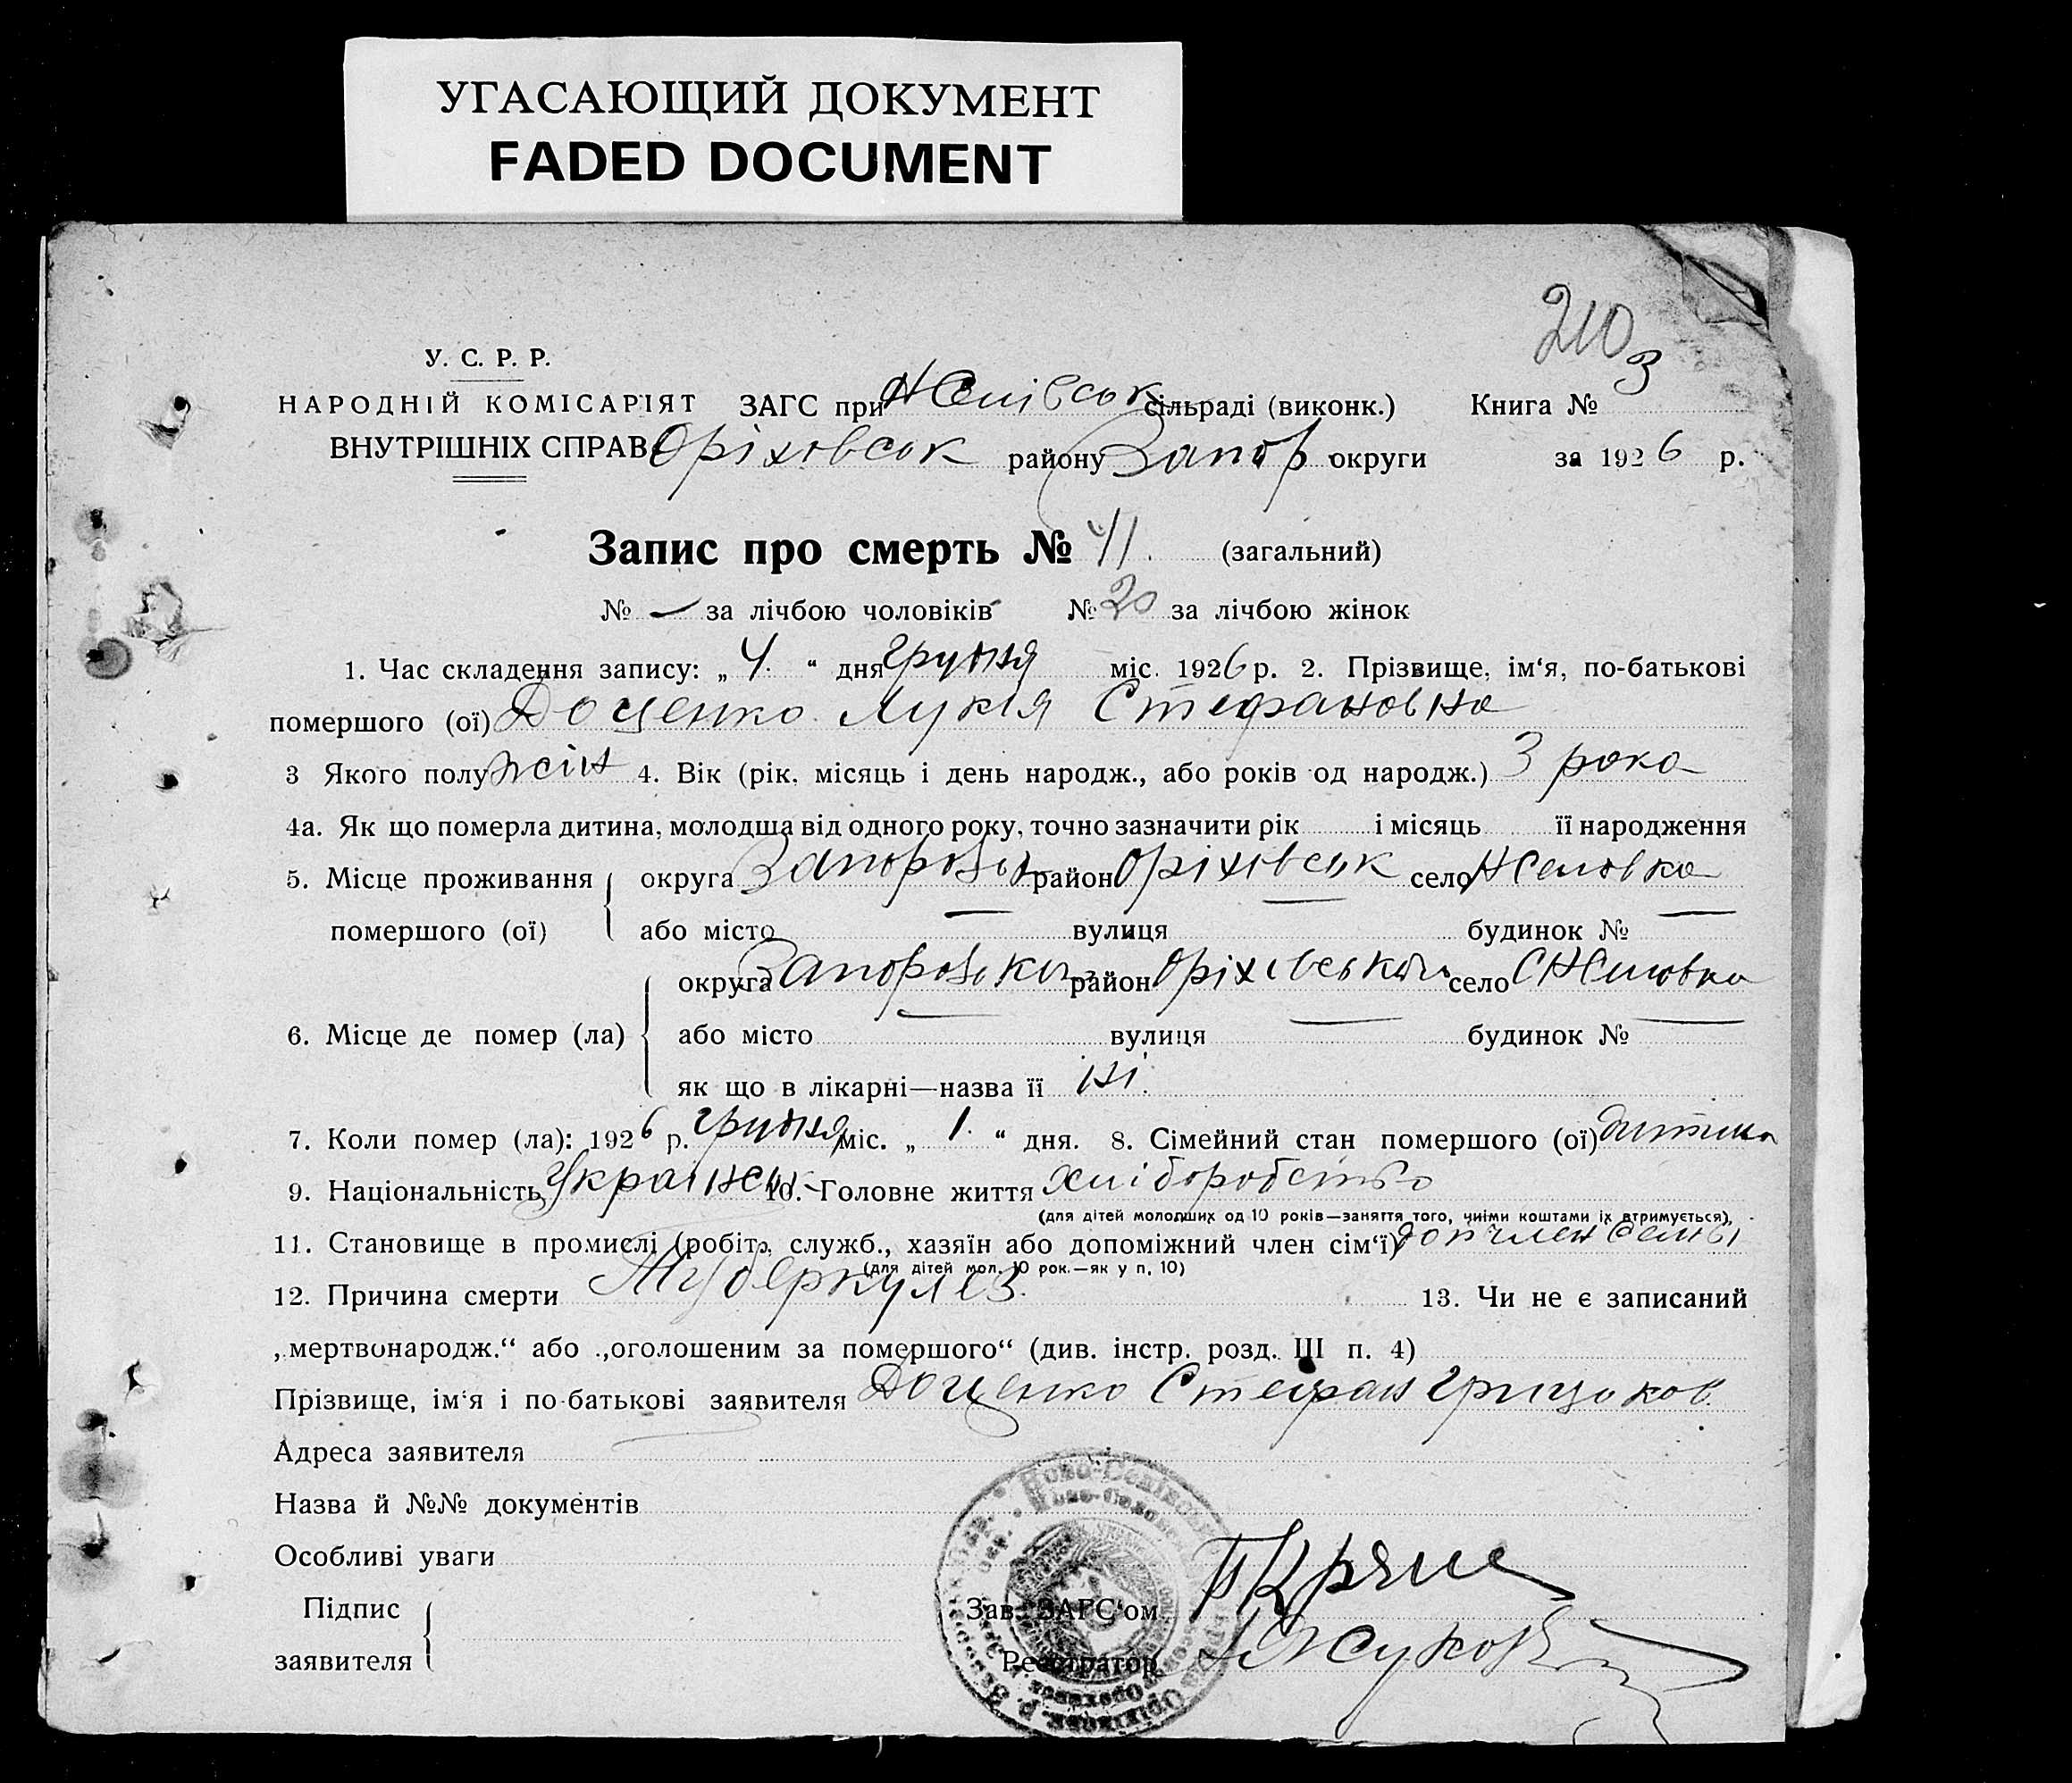 УГАСАЮЩИЙ ДОКУМЕНТ
FADED DOCUMENT
210
У. С. Р. Р.
НАРОДНІЙ КОМІСАР'ІЯТ ЗАГС при сільраді (виконк.) Книга № 3
ВНУТРІШНІХ СПРАВ Оріховськ району Запор округи за 1926 р.
Запис про смерть № 41. (загальний)
№ — за лічбою чоловіків № 20 за лічбою жінок
1. Час складення запису: „ 4. “ дня грудня міс. 1926 р. 2. Прізвище, ім‘я, по-батькові
помершого (ої) Доценко Лукія Стефановна
3 Якого полу жін 4. Вік (рік, місяць і день народж., або років од народж.) 3 рока
4а. Як що померла дитина, молодша від одного року, точно зазначити рік і місяць її народження
5. Місце проживання округа район Оріхівськ село
помершого (ої) або місто — вулиця — будинок № —
округа район село
6. Місце де помер (ла) або місто — вулиця — будинок № —
як що в лікарні—назва її ні.
7. Коли помер (ла): 1926 р. грудня міс. „ 1. “ дня. 8. Сімейний стан помершого (ої) дитина
9. Національність 10. Головне життя хліборобство
(для дітей молодших од 10 років—заняття того, чиїми коштами їх втримується),
11. Становище в промислі (робітн. служб., хазяїн або допоміжний член сім‘ї) доп член семьи
(для дітей мол. 10 рок.—як у п. 10)
12. Причина смерти Туберкулез. 13. Чи не є записаний
„мертвонародж.“ або „оголошеним за помершого“ (див. інстр. розд. III п. 4)
Прізвище, ім‘я і по-батькові заявителя Доценко Стефан Грицьков.
Адреса заявителя
Назва й №№ документів
Особливі уваги
Підпис Зав. ЗАГС‘ом
заявителя Реєстратор